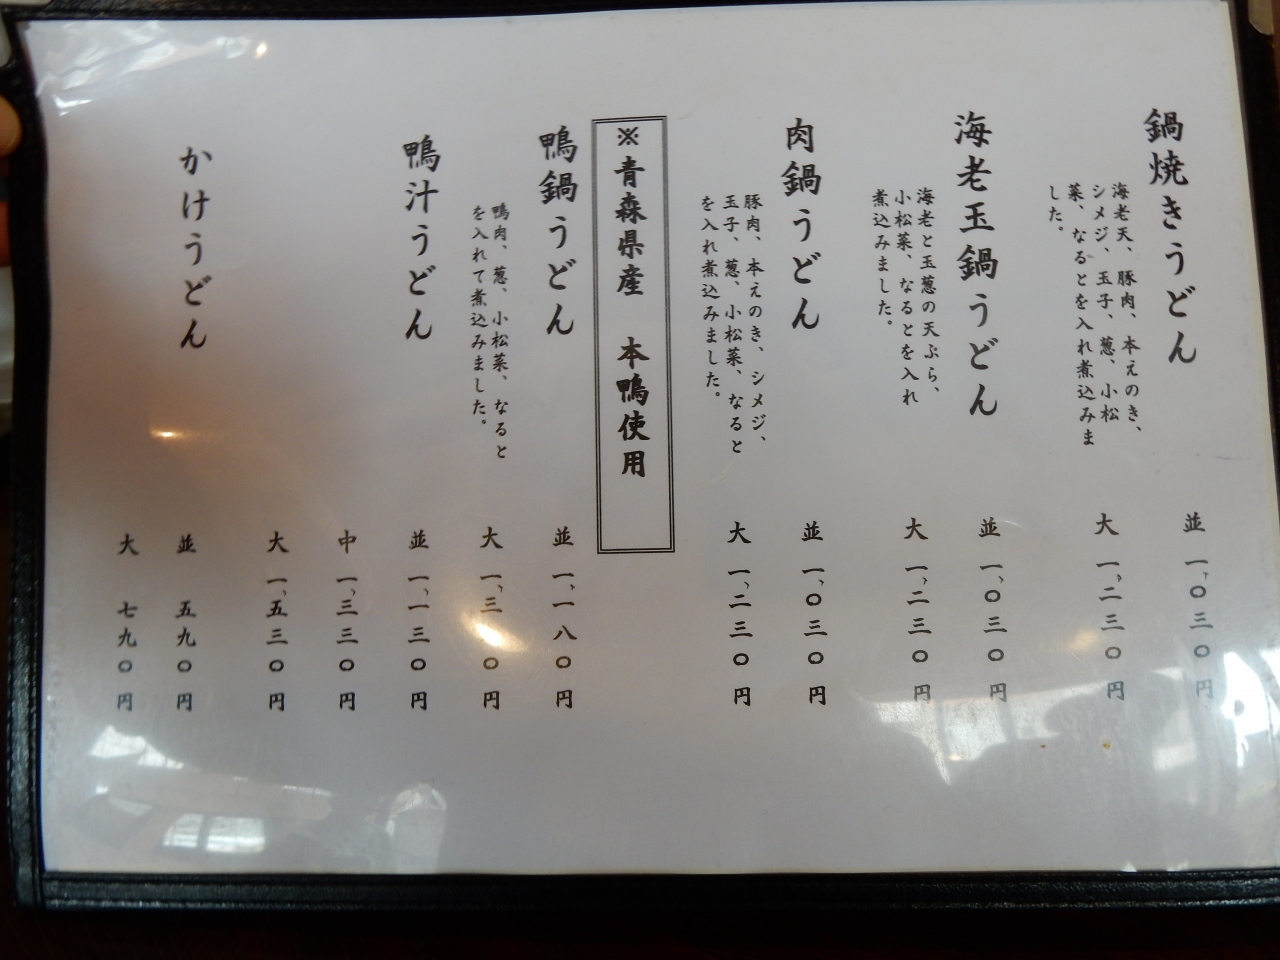 鍋焼きうどん
海老天、豚肉、本えのき、
シメジ、玉子、葱、小松
菜、なるとを入れ煮込みま
した。
並 一、〇三〇円
大 一、二三〇円
海老玉鍋うどん
海老と玉葱の天ぷら、
小松菜、なるとを入れ
煮込みました。
並 一、〇三〇円
大 一、二三〇円
肉鍋うどん
豚肉、本えのき、シメジ、
玉子、葱、小松菜、なると
を入れ煮込みました。
並 一、〇三〇円
大 一、二三〇円
※青森県産 本鴨使用
鴨鍋うどん
鴨肉、葱、小松菜、なると
を入れて煮込みました。
並 一、一八〇円
大 一、三 〇円
鴨汁うどん
並 一、一三〇円
中 一、三三〇円
大 一、五三〇円
かけうどん
並 五九〇円
大 七九〇円